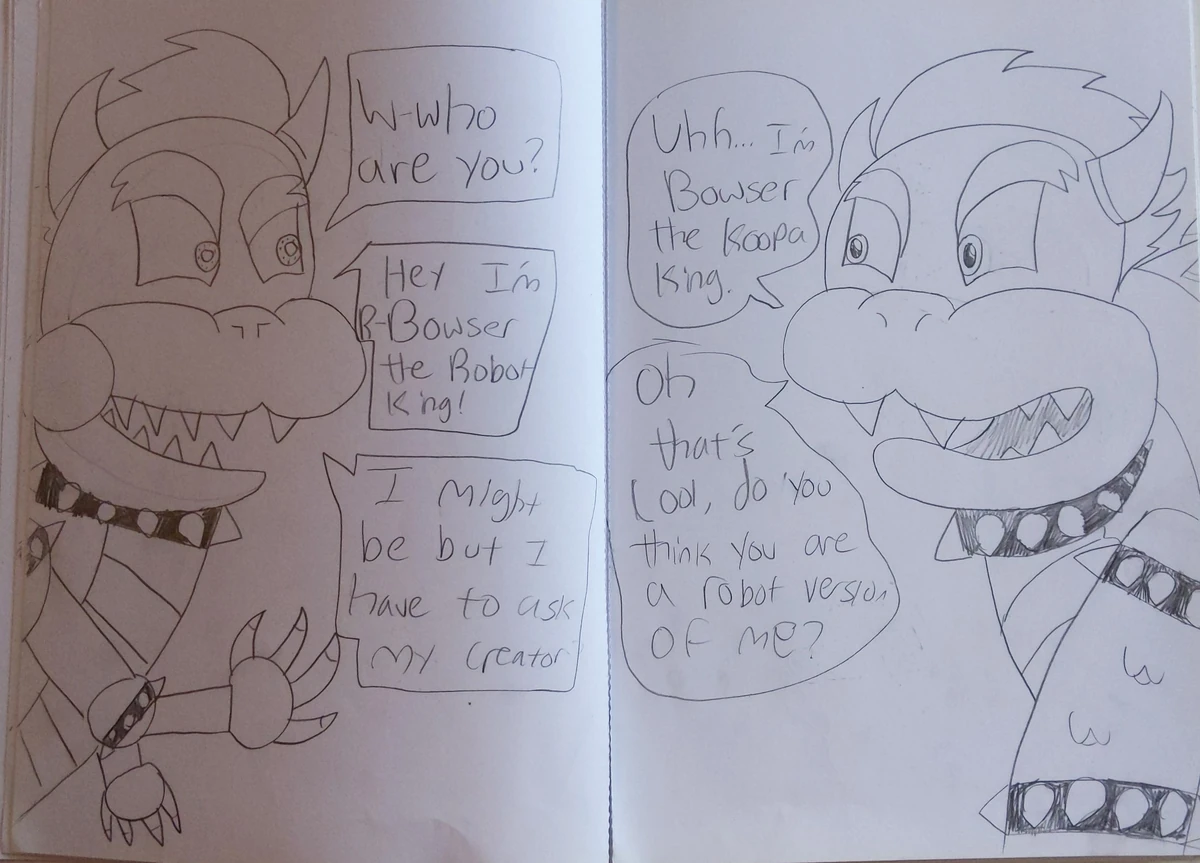 W-who
are you?
Uhh... I'm
Bowser
the Koopa
King.
Hey I'm
B-Bowser
the Robot
King!
Oh
that's
Cool, do you
think you are
a robot version
OF me?
I might
be but I
have to ask
My Creator